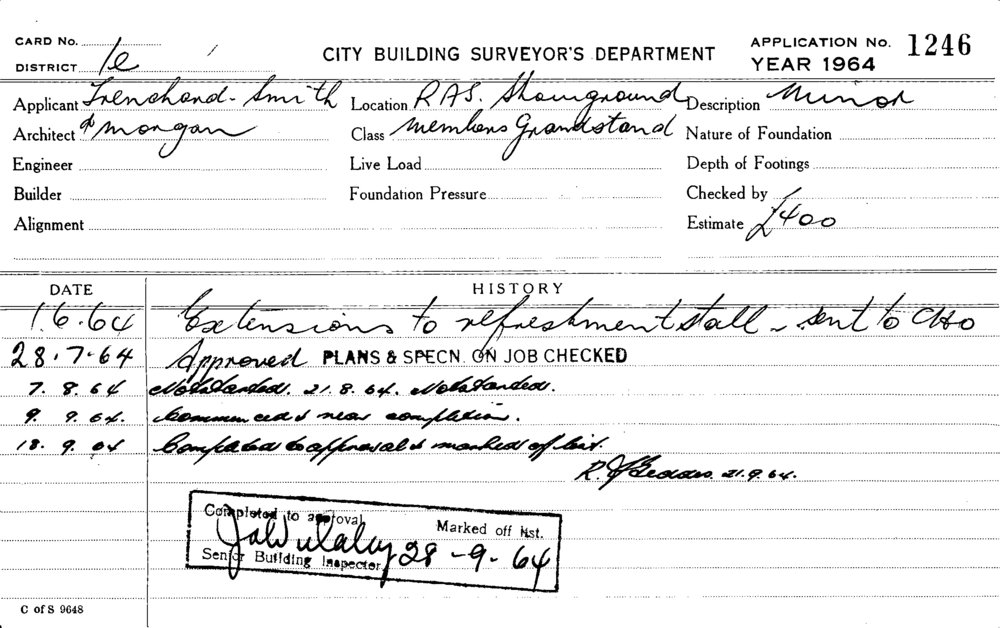 CARD No.
DISTRICT 1e
CITY BUILDING SURVEYOR'S DEPARTMENT
APPLICATION No. 1246
YEAR 1964
Applicant Trenchard-Smith Location RAS. Showground Description Minor
Architect & Morgan Class Members Grandstand Nature of Foundation
Engineer Live Load Depth of Footings
Builder Foundation Pressure Checked by
Alignment Estimate £400
DATE HISTORY
1.6.64 Extensions to refreshment stall - sent to CHO
28.7.64 Approved PLANS & SPECN. ON JOB CHECKED
7.8.64 Not started. 21.8.64. Not started.
9.9.64. Commenced & near completion.
18.9.64 Completed to approval & marked off list.
21.9.64.
Completed to approval Marked off list.
28-9-64
Senior Building Inspector
C of S 9648